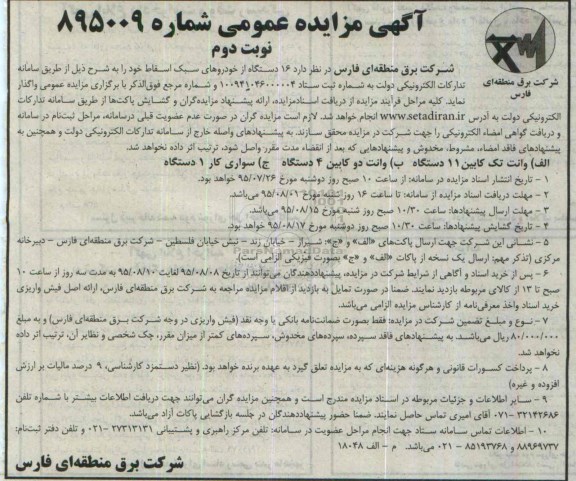 آگهی مزایده عمومی شماره ۸۹۵۰۰۹
نوبت دوم
شرکت برق منطقه‌ای
فارس
شرکت برق منطقه‌ای فارس در نظر دارد ۱۶ دستگاه از خودروهای سبک اسقاط خود را به شرح ذیل از طریق سامانه
تدارکات الکترونیکی دولت به شماره ثبت ستاد ۱۰۰۹۴۱۰۴۶۰۰۰۰۰۴ و شماره مرجع فوق‌الذکر با برگزاری مزایده عمومی واگذار
نماید. کلیه مراحل فرآیند مزایده از دریافت اسنادمزایده، ارائه پیشنهاد مزایده‌گران و گشایش پاکت‌ها از طریق سامانه تدارکات
الکترونیکی دولت به آدرس www.setadiran.ir انجام خواهد شد. لازم است مزایده گران در صورت عدم عضویت قبلی درسامانه، مراحل ثبت‌نام در سامانه
و دریافت گواهی امضاء الکترونیکی را جهت شرکت در مزایده محقق سازند. به پیشنهادهای واصله خارج از سامانه تدارکات الکترونیکی دولت و همچنین به
پیشنهادهای فاقد امضاء، مشروط، مخدوش و پیشنهادهایی که بعد از انقضاء مدت مقرر واصل شود، ترتیب اثر داده نخواهد شد.
الف) وانت تک کابین ۱۱ دستگاه ب) وانت دو کابین ۴ دستگاه ج) سواری کار ۱ دستگاه
۱ - تاریخ انتشار اسناد مزایده در سامانه: از ساعت ۱۰ صبح روز دوشنبه مورخ ۹۵/۰۷/۲۶ خواهد بود.
۲ - مهلت دریافت اسناد مزایده از سامانه: تا ساعت ۱۶ روز شنبه مورخ ۹۵/۰۸/۰۱ می‌باشد.
۳ - مهلت ارسال پیشنهادها: ساعت ۱۰/۳۰ صبح روز شنبه مورخ ۹۵/۰۸/۱۵ می‌باشد.
۴ - تاریخ گشایش پیشنهادها: ساعت ۱۰/۳۰ صبح روز دوشنبه مورخ ۹۵/۰۸/۱۷ خواهد بود.
۵ - نشانی این شرکت جهت ارسال پاکت‌های «الف» و «ج»: شیراز - خیابان زند - نبش خیابان فلسطین - شرکت برق منطقه‌ای فارس - دبیرخانه
مرکزی (تذکر مهم: ارسال یک نسخه از پاکات «الف» و «ج» بصورت فیزیکی الزامی است).
۶ - پس از خرید اسناد و آگاهی از شرایط شرکت در مزایده، پیشنهاددهندگان می‌توانند از تاریخ ۹۵/۰۸/۰۸ لغایت ۹۵/۰۸/۱۰ به مدت سه روز از ساعت ۱۰
صبح تا ۱۳ از کالای مربوطه بازدید نمایند. ضمنا در صورت تمایل به بازدید از اقلام مزایده مراجعه به شرکت برق منطقه‌ای فارس، ارائه اصل فیش واریزی
خرید اسناد واخذ معرفی‌نامه از کارشناس مزایده الزامی می‌باشد.
۷ - نوع و مبلغ تضمین شرکت در مزایده: فقط بصورت ضمانت‌نامه بانکی یا وجه نقد (فیش واریزی در وجه شرکت برق منطقه‌ای فارس) و به مبلغ
۸۰/۰۰۰/۰۰۰ ریال می‌باشد. به پیشنهادهای فاقد سپرده، سپرده‌های مخدوش، سپرده‌های کمتر از میزان مقرر، چک شخصی و نظایر آن، ترتیب اثر داده
نخواهد شد.
۸ - پرداخت کسورات قانونی و هرگونه هزینه‌ای که به مزایده تعلق گیرد به عهده برنده خواهد بود. (نظیر دستمزد کارشناسی، ۹ درصد مالیات بر ارزش
افزوده و غیره)
۹ - سایر اطلاعات و جزئیات مربوطه در اسناد مزایده مندرج است و همچنین مزایده گران می‌توانند جهت دریافت اطلاعات بیشتر با شماره تلفن
۳۲۱۴۲۶۸۶-۰۷۱ آقای امیری تماس حاصل نمایند. ضمنا حضور پیشنهاددهندگان در جلسه بازگشایی پاکات آزاد می‌باشد.
۱۰ - اطلاعات تماس سامانه ستاد جهت انجام مراحل عضویت در سامانه: تلفن مرکز راهبری و پشتیبانی ۲۷۳۱۳۱۳۱-۰۲۱ و تلفن دفتر ثبت‌نام:
۸۸۹۶۹۷۳۷ و ۸۵۱۹۳۷۶۸ - ۰۲۱ می‌باشد. م - الف ۱۸۰۴۸
شرکت برق منطقه‌ای فارس